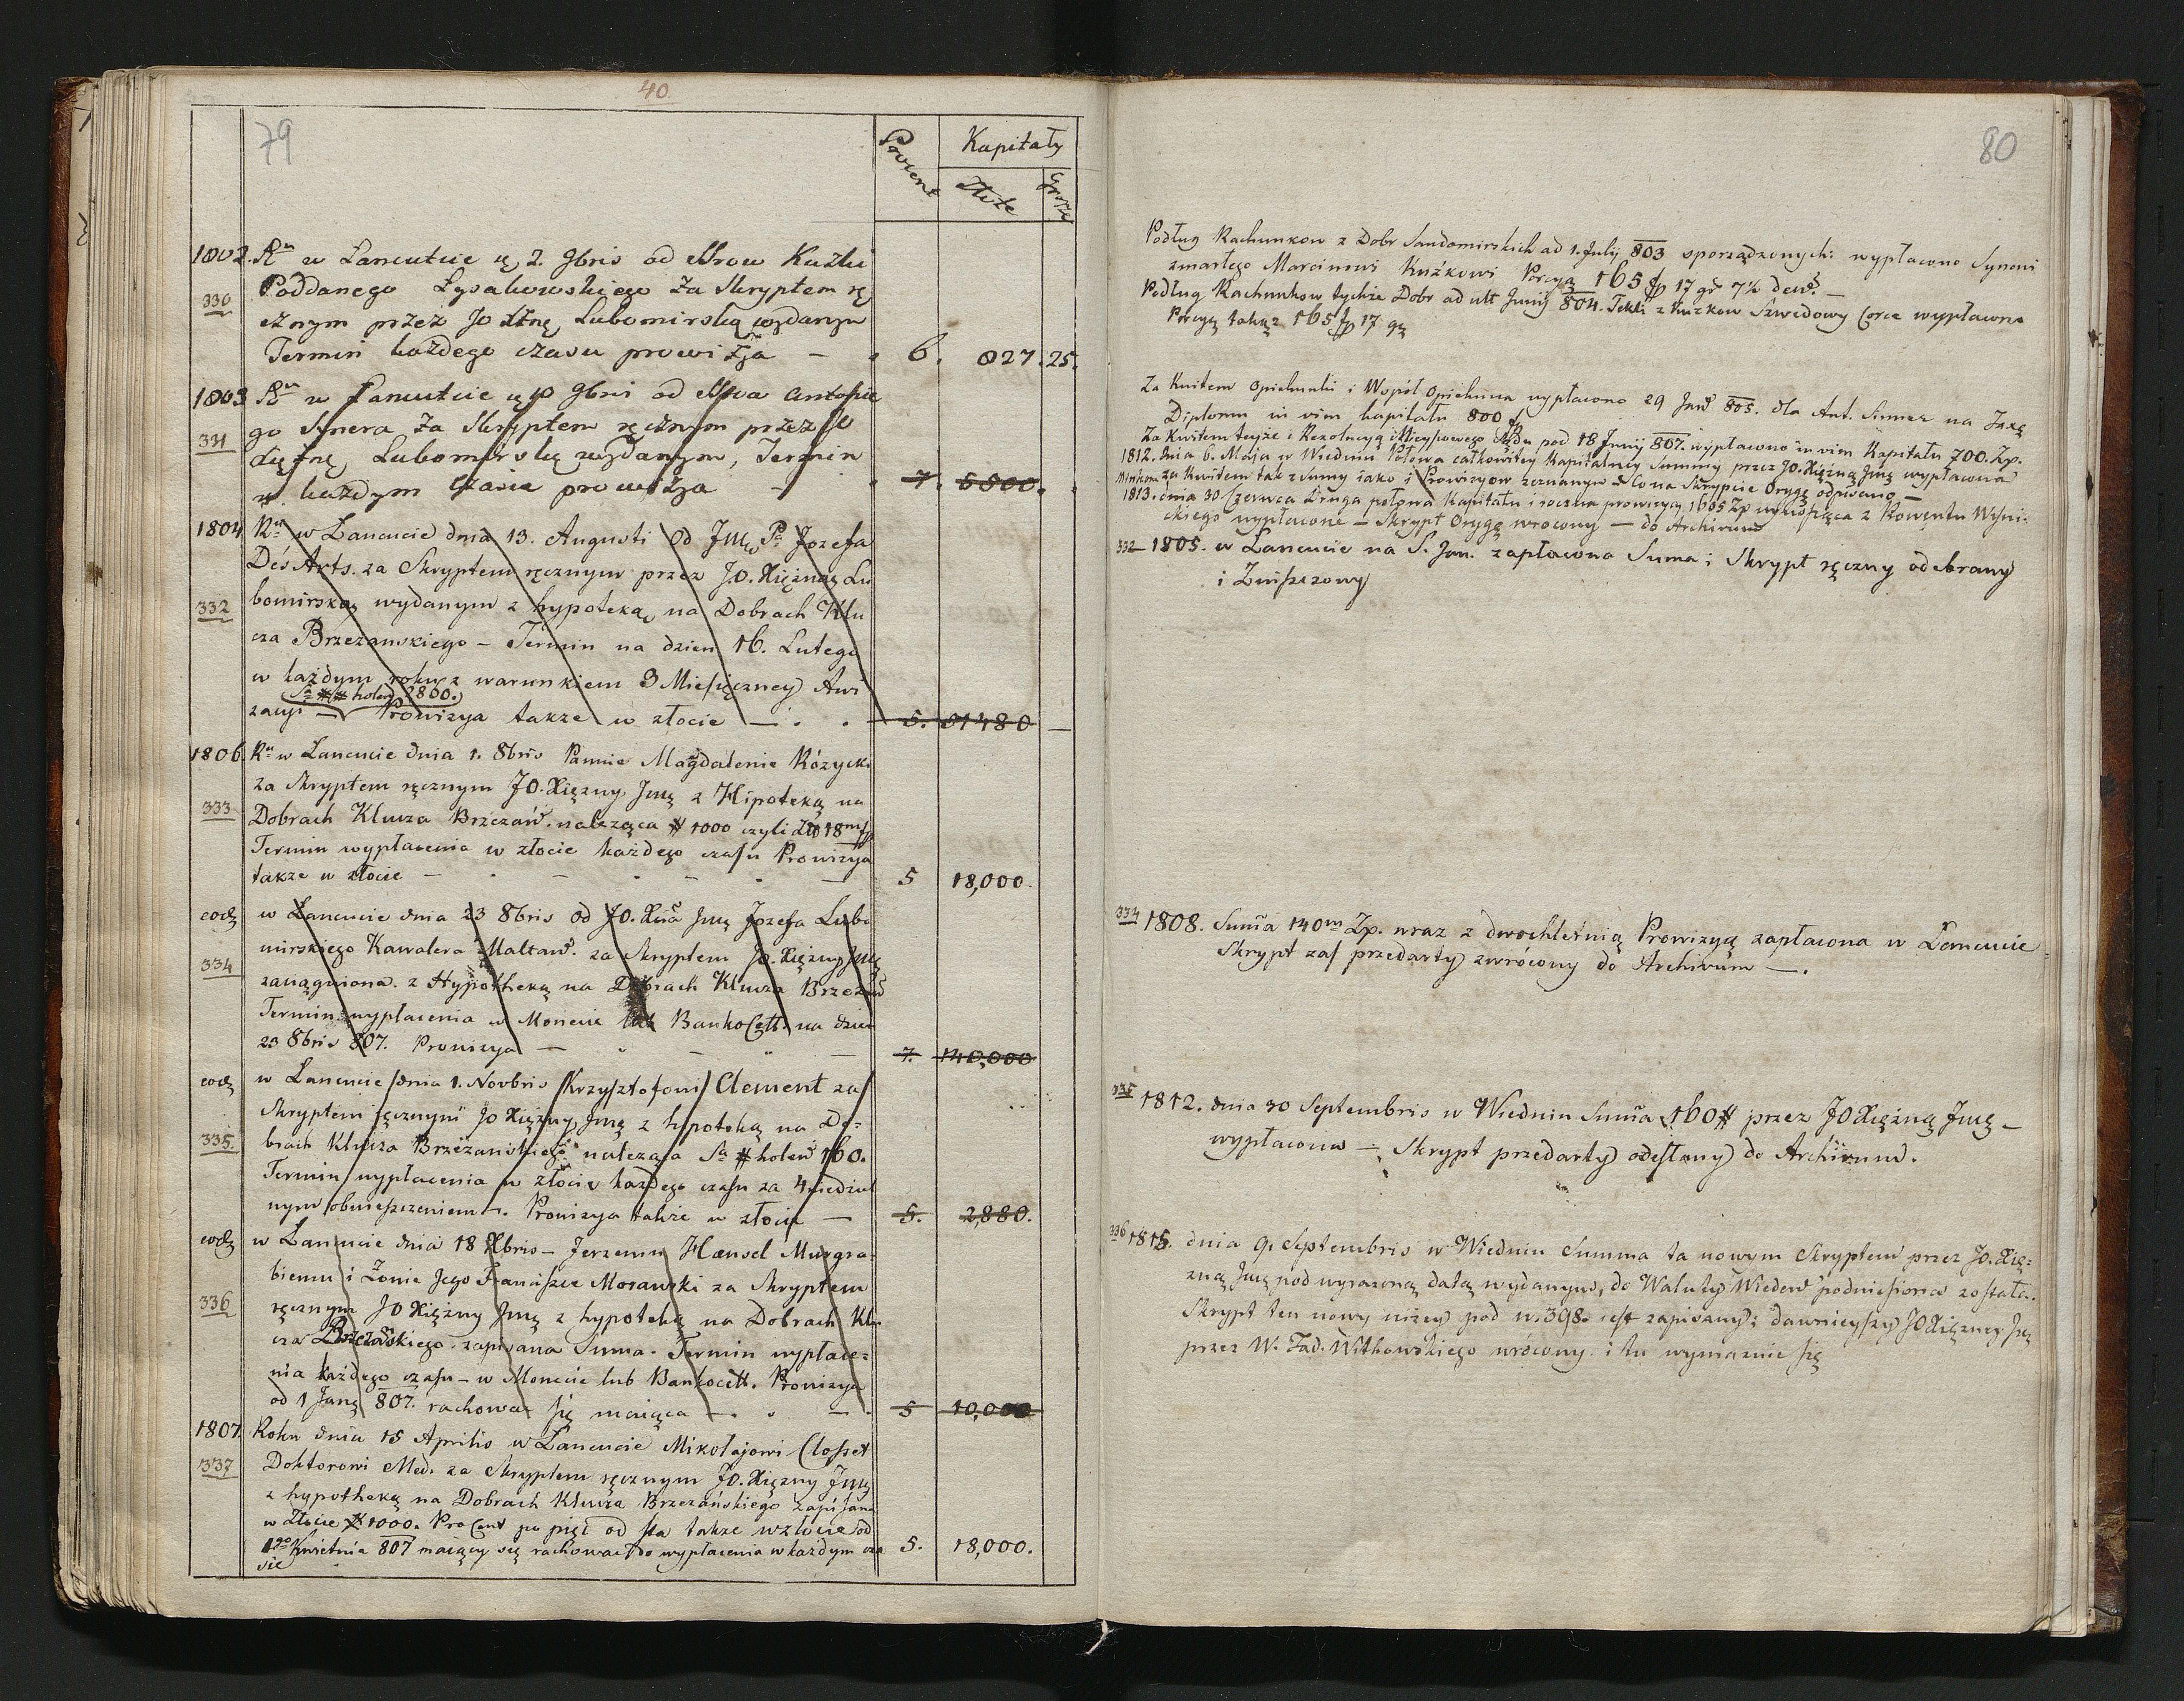 40
79
Procent
Kapitały
Złote
Grosze
1802. Ru w Lancutcie 2. 9bris od Kuzki
330
Poddanego Łysakowskiego Za Skryptem rę
cznym przez JO Xżnę Lubomirską wydanym
Termin każdego czasu prowizja — 6. 827. 25.
1803 Ru w Lancutcie 10 9bris od Antonie
331
go Simera Za Skryptem ręcznym przez JO
Xiężnę Lubomirską wydanym, Termin
w każdym czasie prowizja — 7. 6800.
1804 Ru w Lancucie dnia 13. Augusti Od Jmę Pa Jozefa
Dès Arts. za Skryptem ręcznym przez J.O. Xiężnę Lu
332
bomirską wydanym z hypoteką na Dobrach Klu
cza Brzezanskiego – Termin na dzien 16. Lutego
w każdym roku z warunkiem 3 Miesięczney Awi
(Sa ## holen 2800.)
zacyi — Prowizya takze w złocie — . . 5. 51480 —
1806. Ru w Lancucie dnia 1. 8bris Pannie Magdalenie Rózycki
za Skryptem ręcznym JO. Xiężny Jmę z Hipoteką na
333
Dobrach Klucza Brzezań. naleząca # 1000 czyli Zł 18m
Termin wypłacenia w złocie każdego czasu Prowizya
takze w złocie — 5 18,000.
eod w Lancucie dnia 23 8bris od JO. Xcia Jmę Jozefa Lubo
mirskiego Kawalera Maltań. za Skryptem JO. Xiężny Jmę
334
zaciągniona. z Hypotheką na Dobrach Klucza Brzezań
Termin wypłacenia w Monecie lub BankoCett. na dzien
23 8bris 807. Prowizya — 7. 140,000
eod w Lancucie dnia 1. Novbris Krzysztofowi Clement za
Skryptem ręcznym JO Xiężny Jmę z hypoteką na Do=
335.
brach Klucza Brzezanskiego naleząca Sa # holen 160.
Termin wypłacenia w złocie każdego czasu za 4 niedziel
nym obwieszczeniem. Prowizya także w złocie — 5. 2,880.
eod w Lancucie dnia 18 Xbris – Jerzemu Hænsel Murgra
biemu i Żonie Jego Franciszce Morawski za Skryptem
336
ręcznym JO Xiężny Jmę z hypoteką na Dobrach Klu
cza Brzezańskiego zapisana Suma. Termin wypłace=
nia każdego czasu – w Monecie lub Bankocett. Prowizya
od 1 Janę 807. rachować się maiąca — . 5 10,000
1807. Roku dnia 15 Aprilis w Lancucie Mikołajowi Closset
337
Doktorowi Med. za Skryptem ręcznym JO. Xiężny Jmę
z hypotheką na Dobrach Klucza Brzezańskiego zapisana
w Złocie # 1000. ProCent po pięć od sta takze w złocie od
1go Kwietnia 807 maiący się rachować do wypłacenia w każdym cza 5. 18,000.
sie
80
Podług Rachunkow z Dobr Sandomirskich ad 1. July 803 sporządzonych: wypłacono Synowi
zmarłego Marcinowi Kuźkowi Porcyą 165 fp 17 gr 7½ den. —
Podług Rachunkow tychże Dobr ad ult Junij 804. Tekli z Kuzkow Szwedowy Corce wypłacono
Porcyą takąż 165 fp 17 gę
Za Kwitem Opiekunki i Współ Opiekuna wypłacono 29 Jan 805. dla Ant. Simer na Taxę
Diplomu in vim kapitału 800 f
Za Kwitem teyże i Rezolucyą Mieyscowego Sądu pod 18 Junij 807. wypłacono in vim Kapitału 700. Zp.
1812. dnia 6. Maja w Wiedniu Połowa całkowitey Kapitalney Summy przez JO. Xiężną Jmę wypłacona
za Kwitem tak z Sumy iako i Prowizyow zeznanym – Co na Skrypcie Orygę odpisano —
1813. dnia 30 Czerwca Druga połowa Kapitału i roczna prowizya 1605 Zp wynosząca z Prowentu Wiśni-
ckiego wypłacone – Skrypt Orygę wrocony – do Archivum
332 – 1805. w Lancucie na S. Jan. zapłacona Suma i Skrypt ręczny odebrany
i Zniszczony
334 1808. Suma 140m Zp. wraz z dwochletnią Prowizyą zapłacona w Lancucie
Skrypt zaś przedarty zwrócony do Archivum — .
335 1812. dnia 30 Septembris w Wiedniu Suma 160 # przez JO Xiężną Jmę –
wypłacona — Skrypt przedarty odesłany do Archivum.
336 1815. dnia 9. Septembris w Wiedniu Summa ta nowym Skryptem przez Jo. Xię=
zną Jmę pod wyrazoną datą wydanym, do Waluty Wieden podniesiona została.
Skrypt ten nowy niżey pod N. 398. iest zapisany; dawnieyszy JO Xięzney Jmę
przez W. Tad. Witkowskiego wrócony i tu wymazuie się